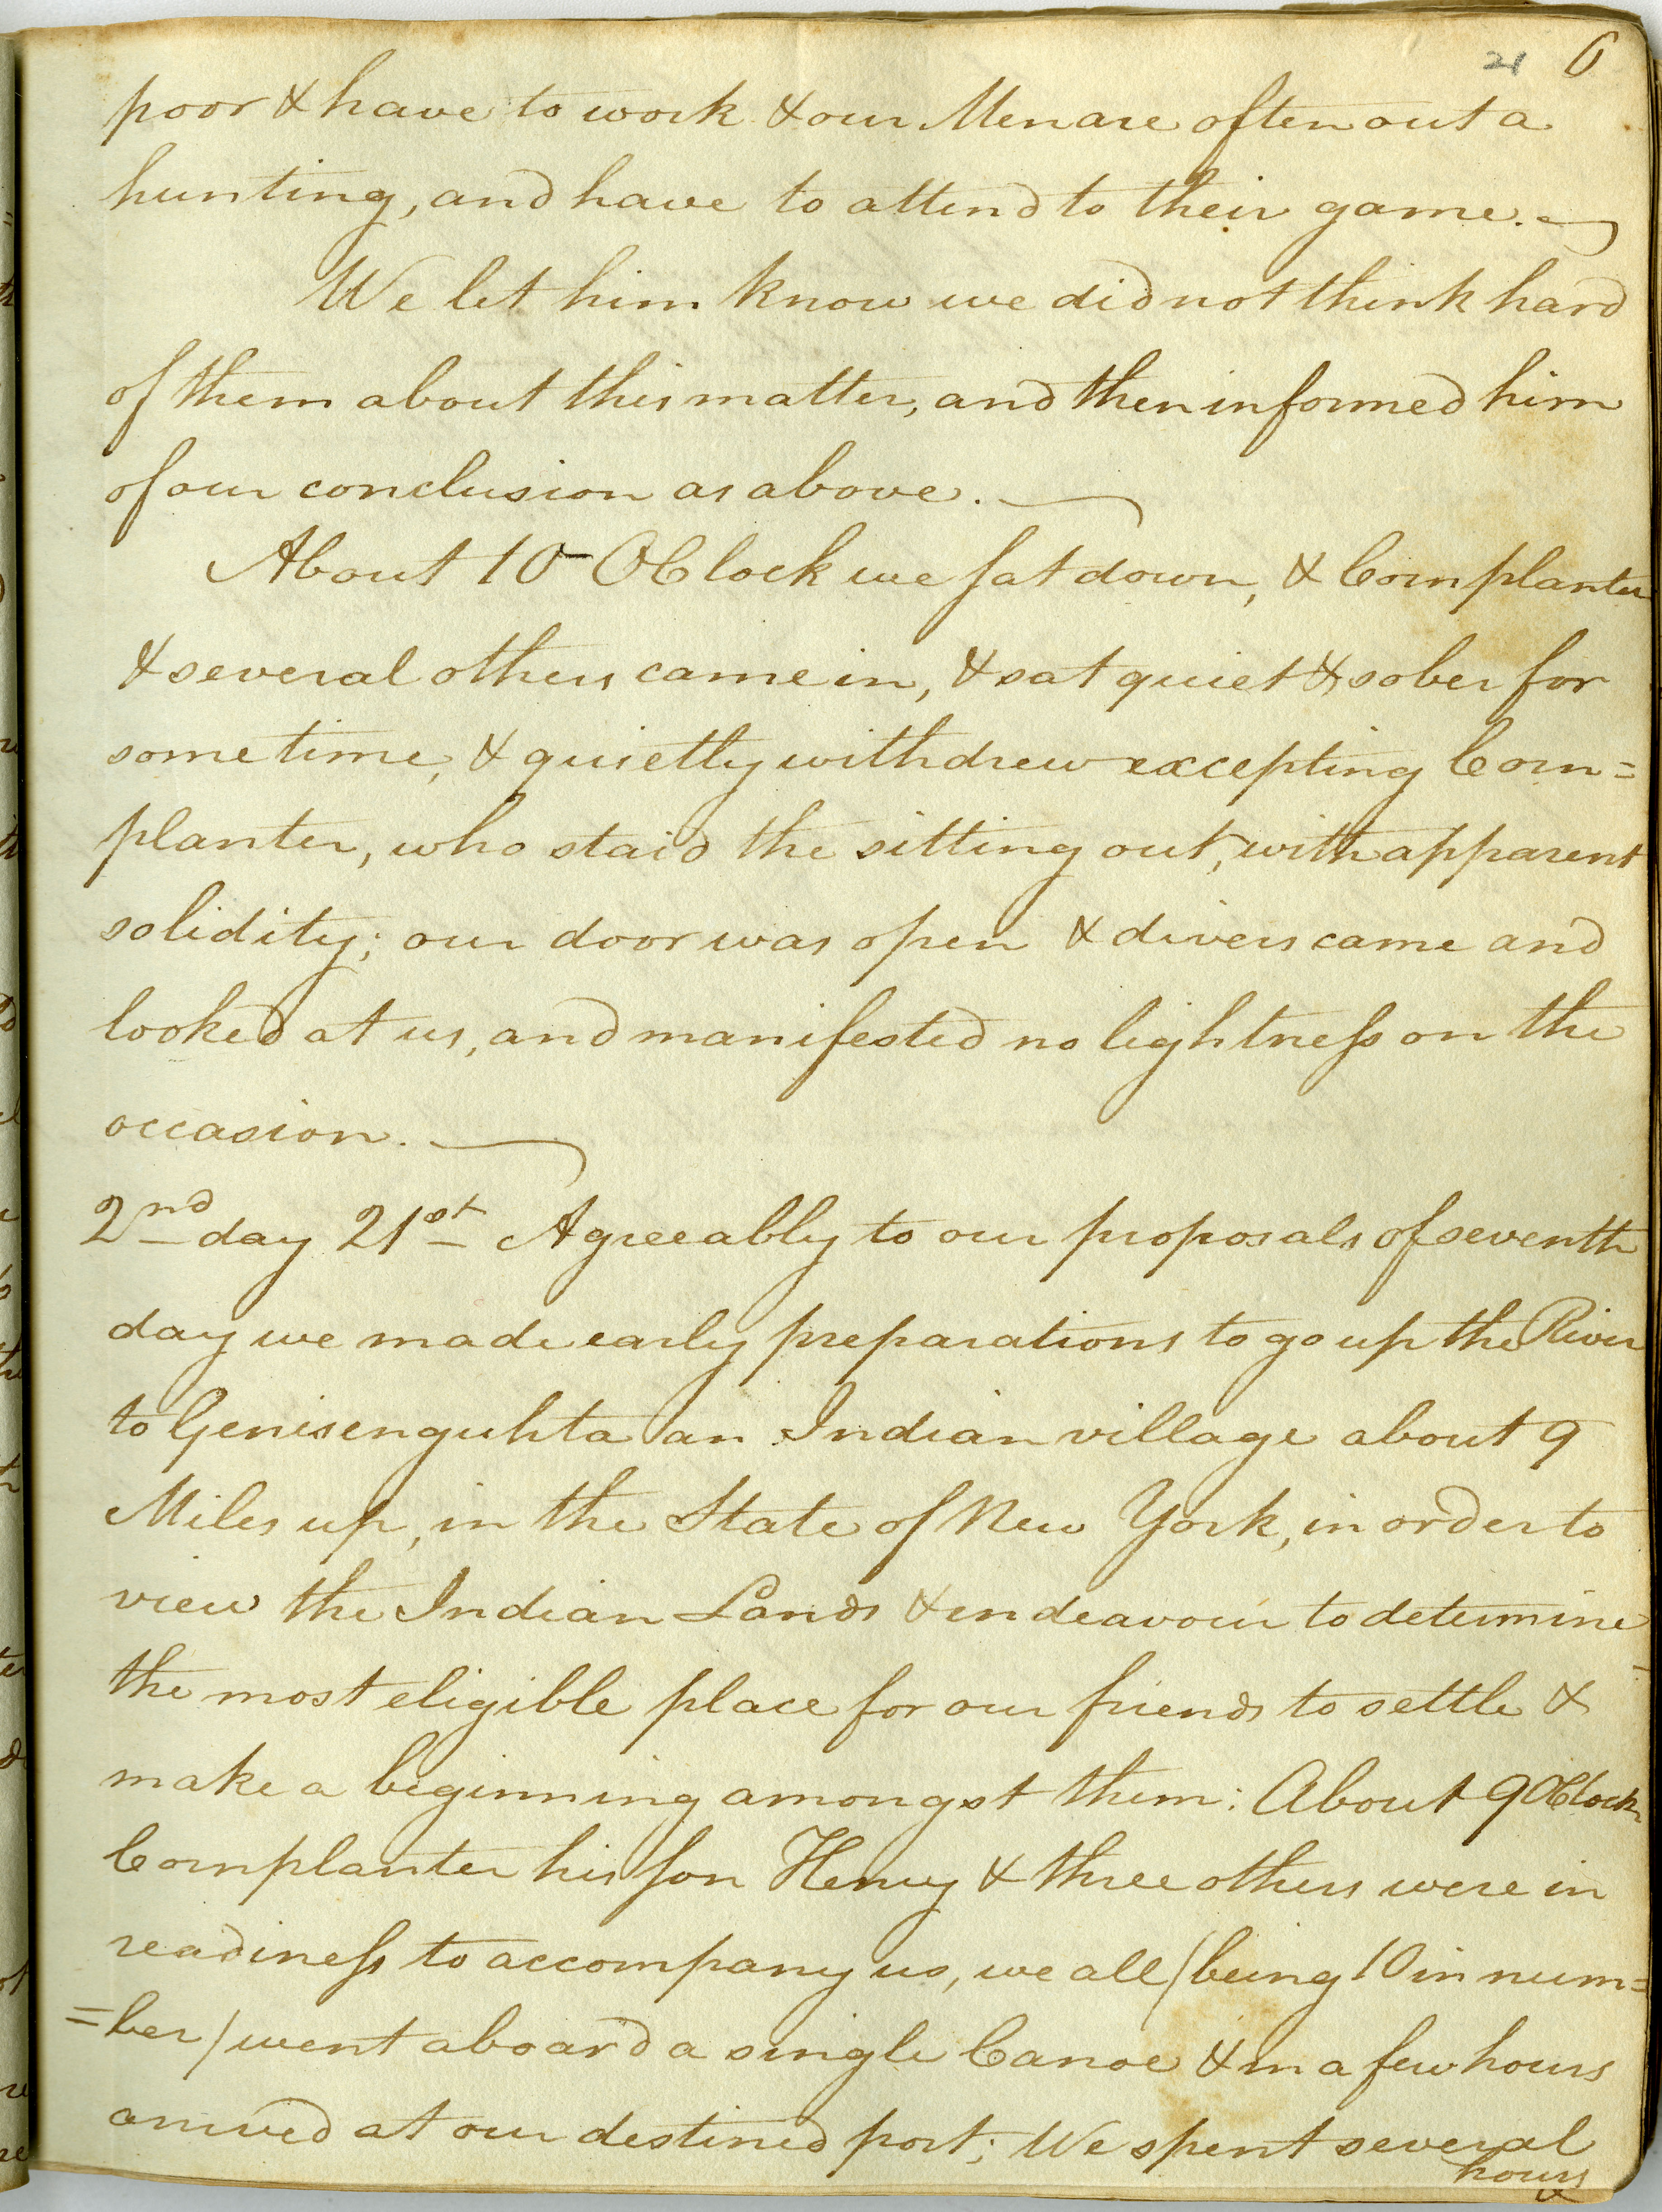 21 6
poor & have to work & our Men are often out a
hunting, and have to attend to their game.
We let him know we did not think hard
of them about this matter, and then informed him
of our conclusion as above.
About 10 OClock we sat down, & Cornplanter
& several others came in, & sat quiet & sober for
some time, & quietly withdrew excepting Corn=
planter, who staid the sitting out, with apparent
solidity; our door was open & divers came and
looked at us, and manifested no lightness on the
occasion.
2nd day 21st Agreeably to our proposals of seventh
day we made early preparations to go up the River
to Genisenguhta an Indian village about 9
Miles up, in the State of New York, in order to
view the Indian Lands & endeavour to determine
the most eligible place for our friends to settle &
make a beginning amongst them: About 9 OClock
Cornplanter his son Henry & three others were in
readiness to accompany us, we all (being 10 in num=
=ber) went aboard a single Canoe & in a few hours
arrived at our destined port; We spent several
hours